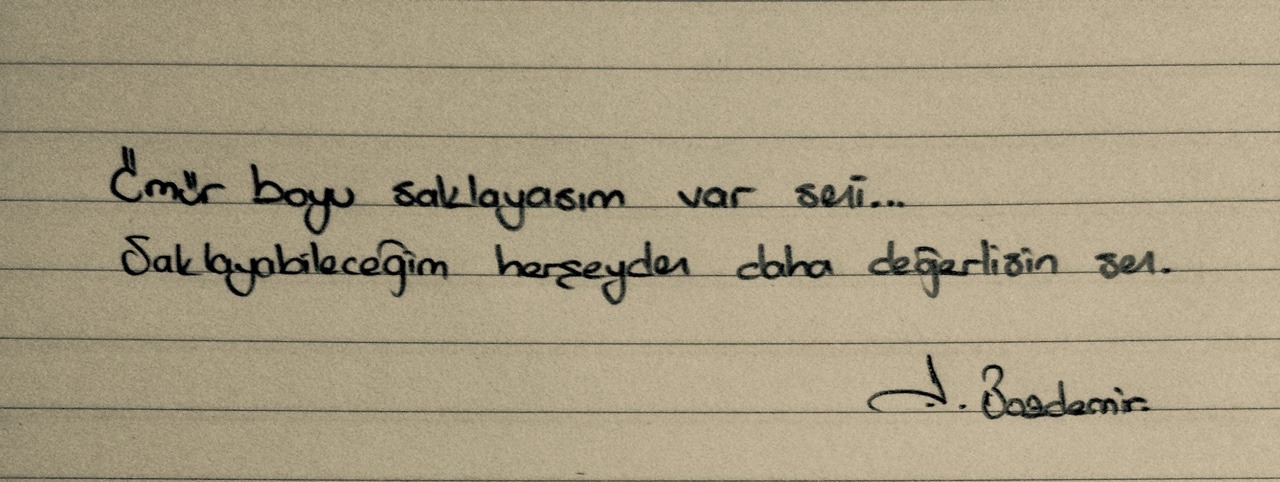 Ömür boyu saklayasım var seni...
Saklayabileceğim herşeyden daha değerlisin sen.